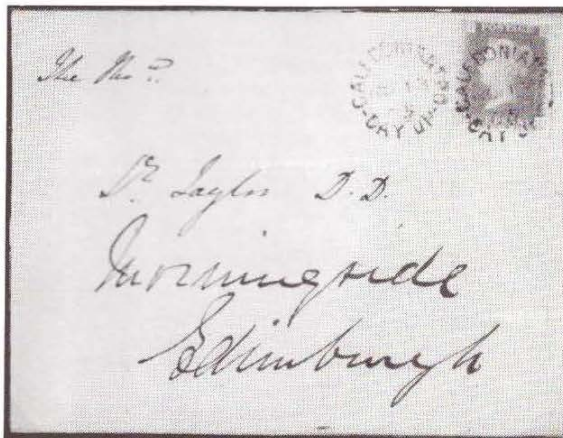 CALEDONIAN RY
DAY UP
CALEDONIAN
DAY UP
The
Dr. Taylor D.D.
Morningside
Edinburgh